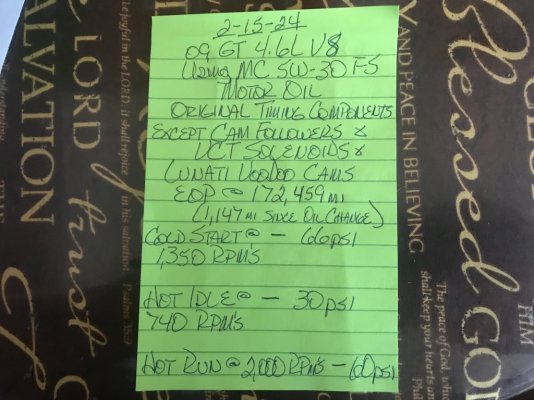 2-15-24
09 GT 4.6L V8
Using MC 5W-30 FS
MOTOR OIL
ORIGINAL TIMING COMPONENTS
EXCEPT CAM FOLLOWERS &
VCT SOLENOIDS &
LUNATI VOODOO CAMS
EOP @ 172,459 mi
(1,147 mi SINCE OIL CHANGE)
COLD START @ - 66psi
1,350 RPM'S
HOT IDLE @ - 30psi
740 RPM'S
HOT RUN @ 2,000 RPM'S - 60psi
SALVATION
be joyful in the LORD; it shall rejoice
in his salvation. Psalms 35:9
LORD
trust
THE
AND PEACE IN BELIEVING
Blessed
The peace of God, which
shall keep your hearts an
GOD
HIM